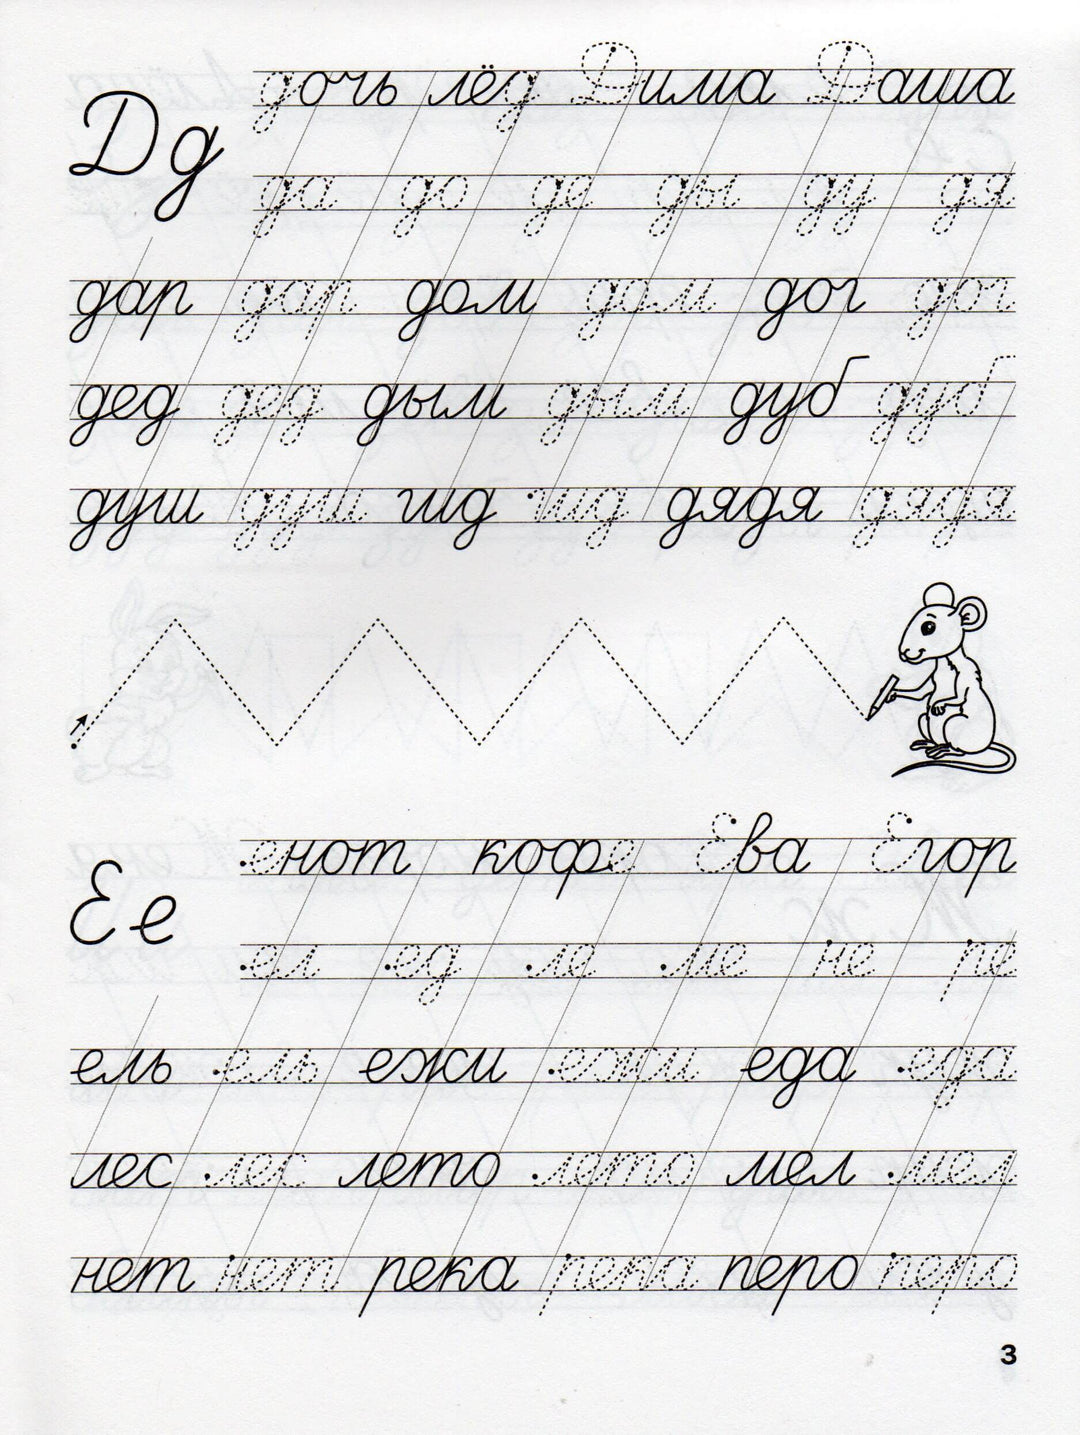 Дд
дочь лёд Дима Даша
да до де ды ду дя
дар дар дом дом дог дог
дед дед дым дым дуб дуб
душ душ гид гид дядя дядя
Ее
енот кофе Ева Егор
ел ед ле ме не ре
ель ель ежи ежи еда еда
лес лес лето лето мел мел
нет нет река река перо перо
3